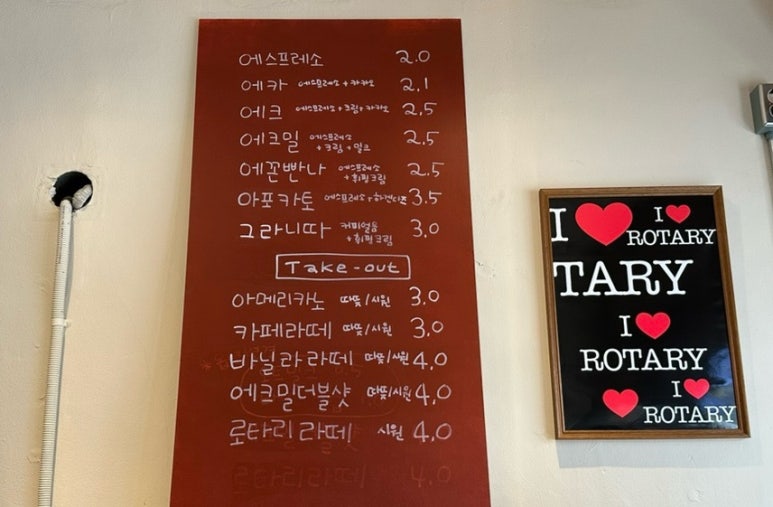 에스프레소 2.0
에카 에스프레소 + 카카오 2.1
에크 에스프레소 + 크림 + 카카오 2.5
에크밀 에스프레소 + 크림 + 밀크 2.5
에꼰빤나 에스프레소 + 휘핑크림 2.5
아포카토 에스프레소 + 하겐다즈 3.5
그라니따 커피얼음 + 휘핑크림 3.0
Take-out
아메리카노 따뜻/시원 3.0
카페라떼 따뜻/시원 3.0
바닐라라떼 따뜻/시원 4.0
에크밀더블샷 따뜻/시원 4.0
로타리라떼 시원 4.0
로타리라떼 4.0
I ROTARY
I
TARY
I
ROTARY
I
ROTARY